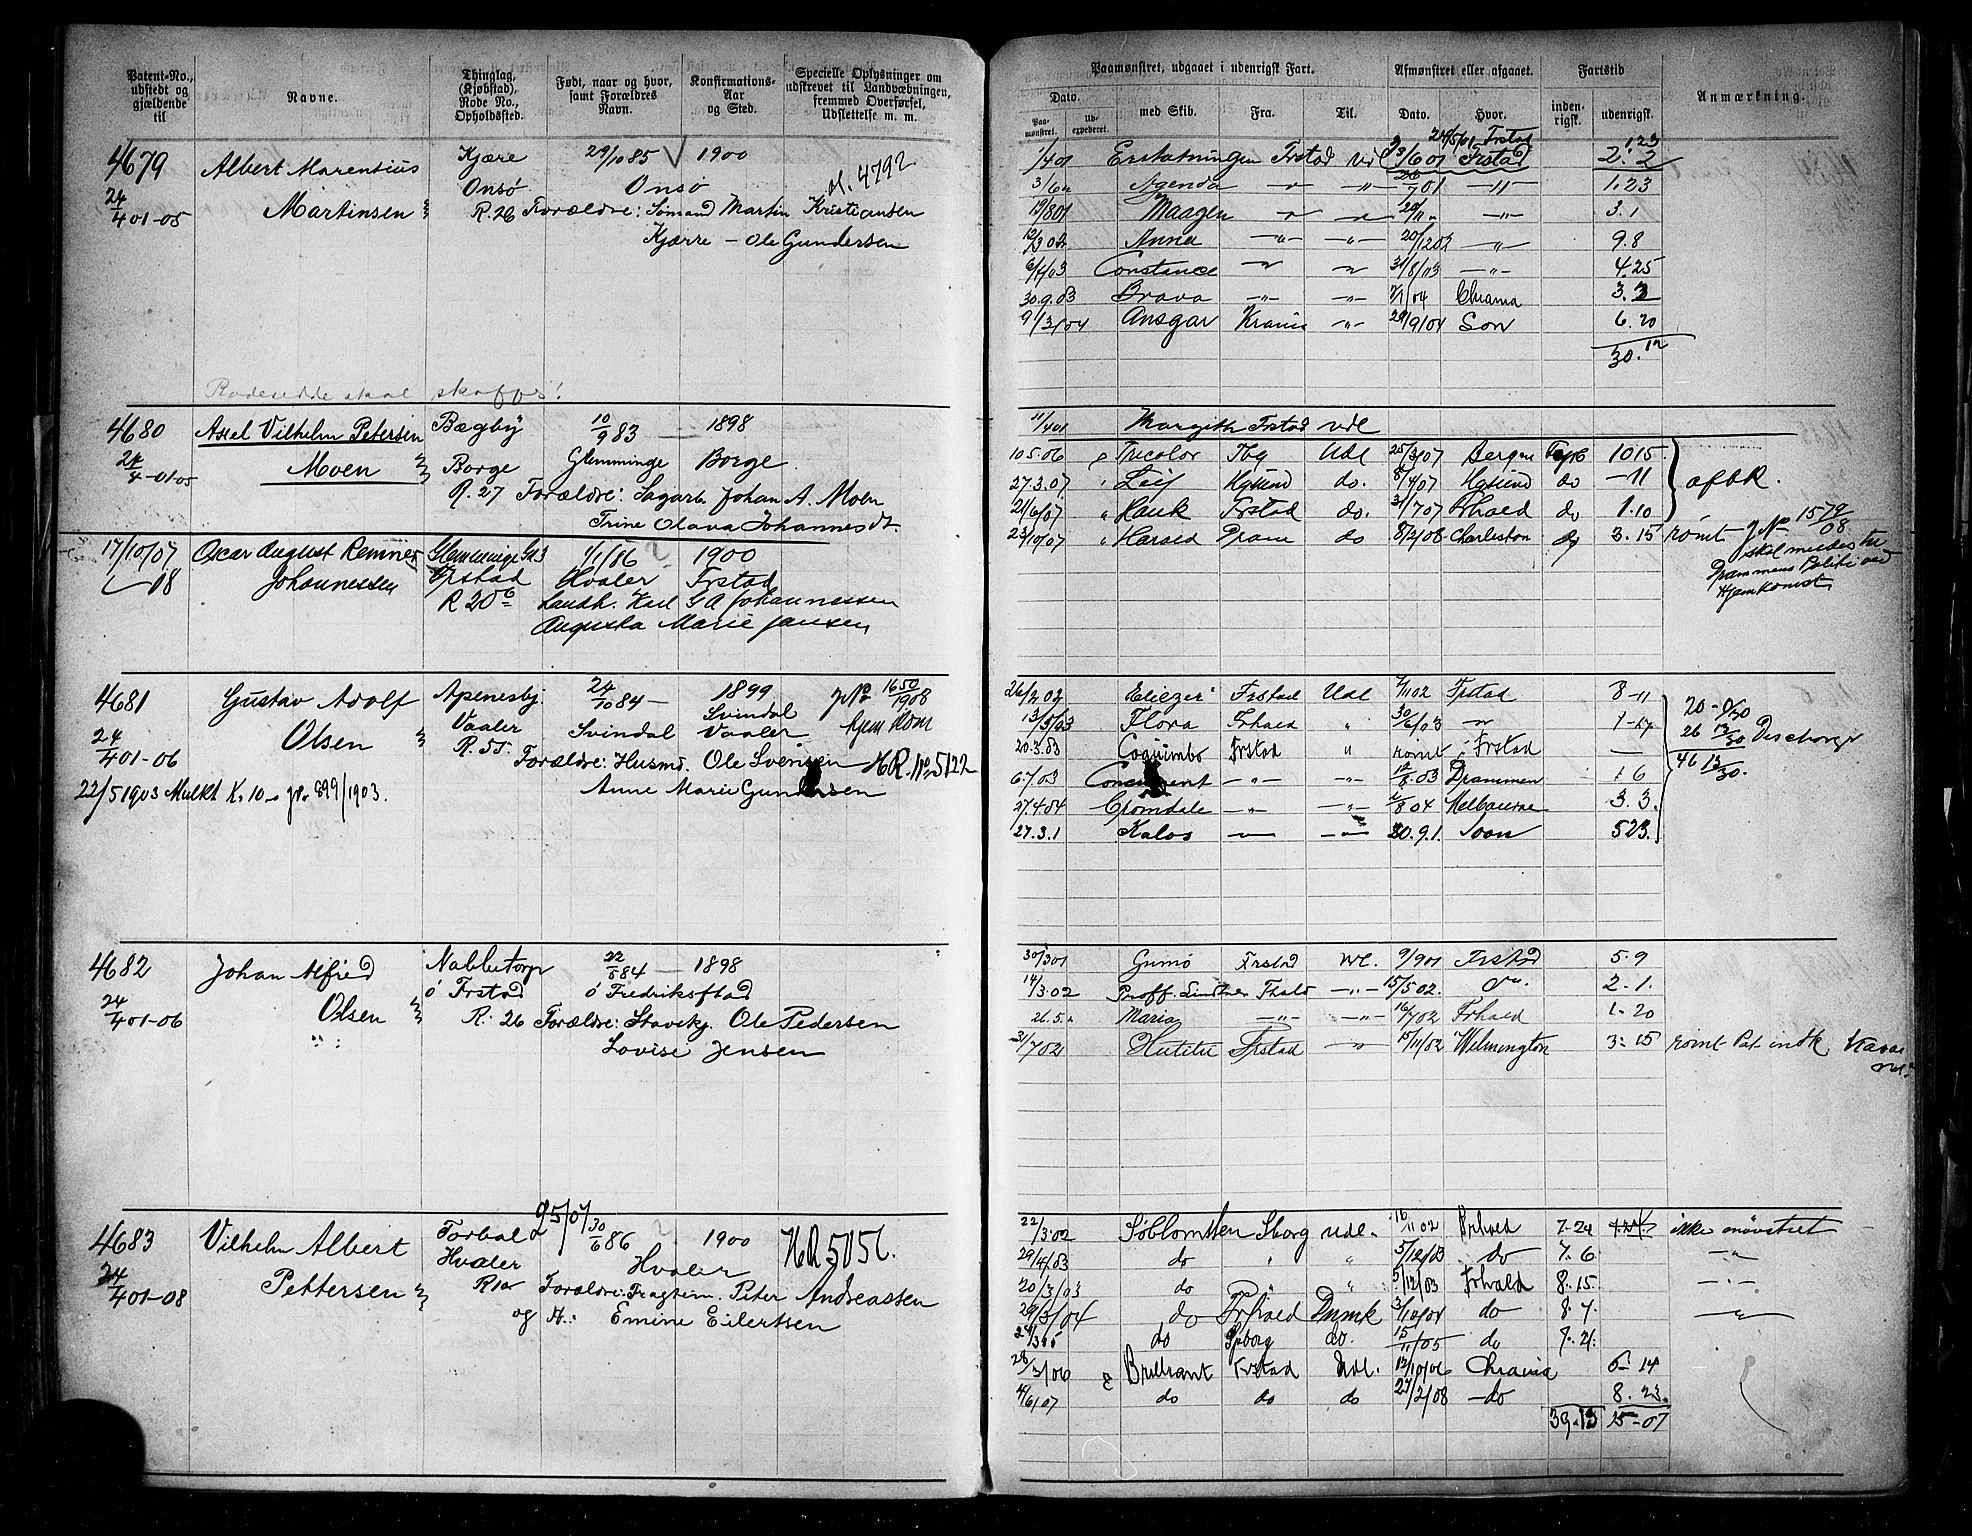 Patent-No., udstedt og gjældende til
Navne.
Thinglag, (Kjøbstad), Rode No., Opholdssted.
Født, naar og hvor, samt Forældres Navn.
Konfirmations-Aar og Sted.
Specielle Oplysninger om udskrevet til Landværnet, fremmed Oversørsel, Udslettelse m. m.
4679 Albert Marentius Kjære 29/10 85 1900 ol. 4792
24/4 01-05 Martinsen Onsø Onsø
R. 26 Forældre: Sømand Martin Kristiansen
Kjærre – Ole Gundersen
Rodesedde skal skaffes!
4680 Axel Vilhelm Petersen Bægby 10/9 83 — 1898
24/4-01-05 Moen Borge Glemminge Borge
R. 27 Forældre: Sagarb. Johan A. Moen
Trine Olava Johannesdt.
17/10/07 Oscar August Remner Glemminge 1/1/86 1900
08 Johannessen Frstad Hvaler Frstad
R 206 Landh. Karl G A Johannessen
Augusta Marie Jansen
4681 Gustav Adolf Apenesbj. 24/10 84 — 1899 jNo 1650/1908
24/4 01-06 Olsen Vaaler Svindal Svindal Vaaler hjem kom
R. 55 Forældre: Husmd. Ole Svensen HR. No. 5122
22/5 1903 Mulkt K. 10 jNr 899/1903. Anne Marie Gundersen
4682 Johan Alfred Nabbetorp 22/5 84 — 1898
24/4 01-06 Olsen ó Frstad ó Fredrikstad
R: 26 Forældre: Ole Pedersen
Lovise Jensen
4683 Vilhelm Albert Forbal 95/07 30/6 86 1900 HR 5056.
24/4 01-08 Pettersen Hvaler Hvaler
Forældre: Peter Andreassen
og H.: Emine Eilertsen
Paamønstret, udgaaet i udenrigsk Fart.
Afmønstret eller afgaaet.
Fartstid
Anmærkning.
Dato.
Paamønstret.
Udexpederet.
med Skib.
Fra.
Til.
Dato.
Hvor.
indenrigsk.
udenrigsk.
24/5/01 Frstad 1 23
1/4 01 Erstatningen Frstad Udl 23/6 01 Frstad 2. 2
3/6 Agenda 26/7 01 1. 23
19/8 01 Maagen 20/11 3. 1
12/3 02 Anna 20/12 02 9. 8
6/4/03 Constance 31/8/03 4. 25
30.9.03 Brava 2/1/04 Chrania 3. 3
9/3/04 Ansgar Krania 29/9/04 Son 6. 20
30. 12
11/4 01 Margith Frstad Udl
10 5.06 Tricolor Tbg Udl 25/3/07 Bergen 10 15
27.3.07 Leif Hgsund do. 8/4/07 Hgsund do – 11 afbk.
21/6/07 Hauk Frstad do. 31/7/07 Frhald do 1. 10
23/10/07 Harald Dram do 8/2/08 Charleston do 3. 15 rømt jNo 1579/08
skal meldes til
Drammens Politi ved
Hjemkomst
26/2 02 Eliezer Frstad Udl 7/11 02 Frstad 8 - 11
13/5/03 Flora Frhald 30/6/03 1 - 17
20.3.03 Coquimbo Frstad rømt Frstad —
6.7.03 Concurrent 12/8.03 Drammen 1. 6
27.4.04 Glomdale 2/8 04 Melbourne 3. 3.
27.3.1 Kalos 20.9.1. Soon 5 23.
20 - 0/30
26 13/30 Discharge
46 13/30.
30/3 01 Gumø Frstad Udl. 9/9 01 Frstad 5. 9
14/3.02 Proff. Lindtner Fhald 15/5 02. 2. 1.
21. 5. Maria 16/7 02 Frhald 1. 20
31/7 02 Frstad 15/11/02 Wilmington 3. 15 rømt Pat indk.
22/3 02 Søblomsten Sborg Udl. 16/11 02 Frhald 7 - 24 ikke mønstret
29/4/03 do 5/12/03 do 7. 6
20/3/03 do 5/12/03 Frhald 8. 15
29/3/04 do Frhald Dnmk 3/12/04 do 8. 7
do Spborg do. 15/11/05 do 7. 21
28/3/06 Brilliant Frstad Udl. 12/10/06 Chrania 6 - 14
4/6/07 do do do 27/2/08 do 8. 23.
39 - 13 15 - 07